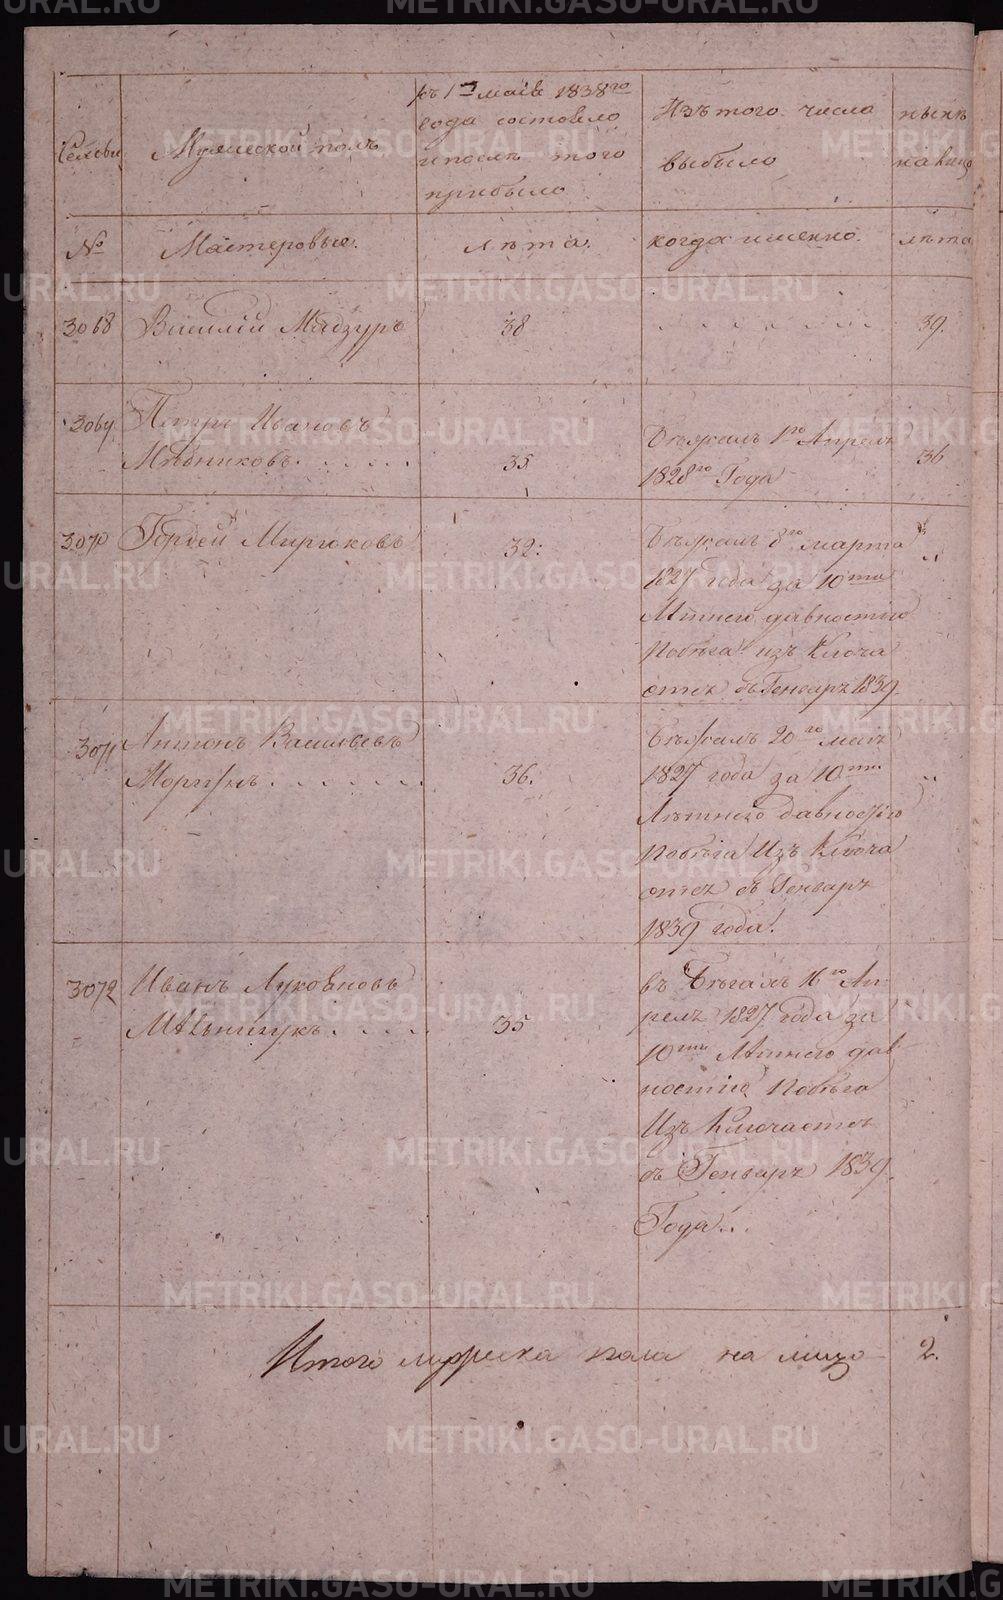 Семьи
Мужеской полъ
къ 1 маія 1838го
года состояло
и послѣ того
прибыло
Изъ того числа
выбыло
нынѣ
на лицо
№
Мастеровые.
лѣта.
когда именно.
лѣта
3068
Василій Мадзуръ
38
39.
3069
Петръ Ивановъ
Мѣдниковъ
35
Бѣжалъ 1го Апреля
1828го Года
36
3070
Гордей Мирюковъ
32:
Бѣжалъ 8го марта
1827 года за 10ти
Лѣтней давностію
побѣга изъ Ключа
отъ въ Генварѣ 1839
3071
Антонъ Васильевъ
36.
Бѣжалъ 20го маія
1827 года за 10ти
Лѣтнею давностію
побѣга Изъ Ключа
въ Генварѣ
1839 года.
3072
Иванъ
Мѣльничукъ
35
въ Бѣгахъ 16го Ап-
реля 1827 года за
10ти Лѣтнею дав-
ностію побѣга
Изъ
въ Генварѣ 1839
Года
Итого мужеска пола на лицо 2.
METRIKI.GASO-URAL.RU